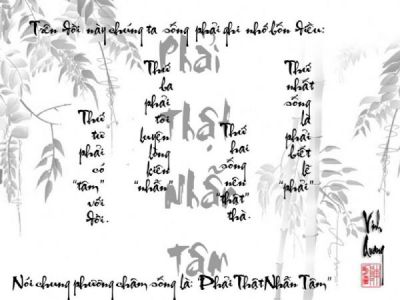 Trên đời này chúng ta sống phải ghi nhớ bốn điều:
Thứ nhất sống là phải biết lẽ "phải"
Thứ hai sống nên "thật" thà.
Thứ ba phải tôi luyện lòng kiên "nhẫn"
Thứ tư phải có "tâm" với đời.
Phải
Thật
Nhẫn
Tâm
Nói chung phương châm sống là: "Phải Thật Nhẫn Tâm"